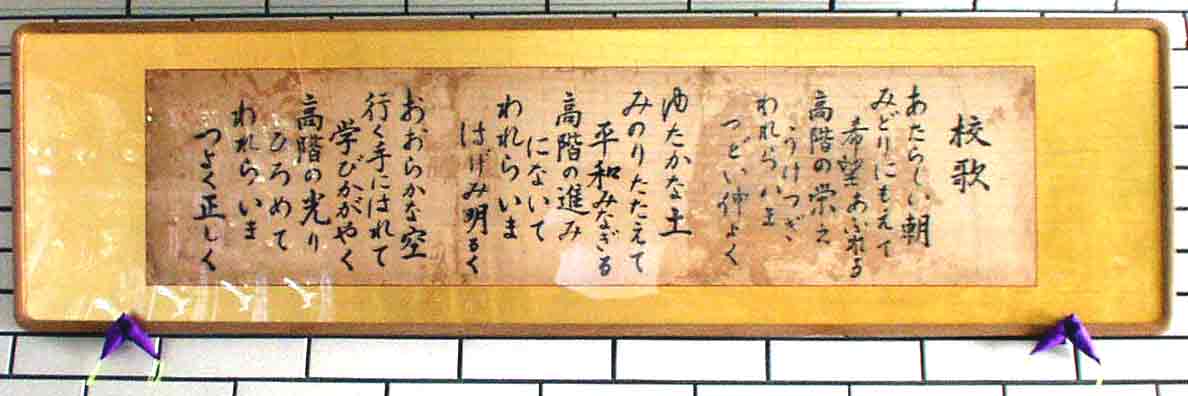 校歌
あたらしい朝
みどりにもえて
希望あふれる
高階の栄え
うけつぎ
われらいま
つどい仲よく
ゆたかな土
みのりたたえて
平和みなぎる
高階の進み
になひて
われらいま
はげみ明るく
おおらかな空
行く手にはれて
学びかがやく
高階の光り
ひろめて
われらいま
つよく正しく